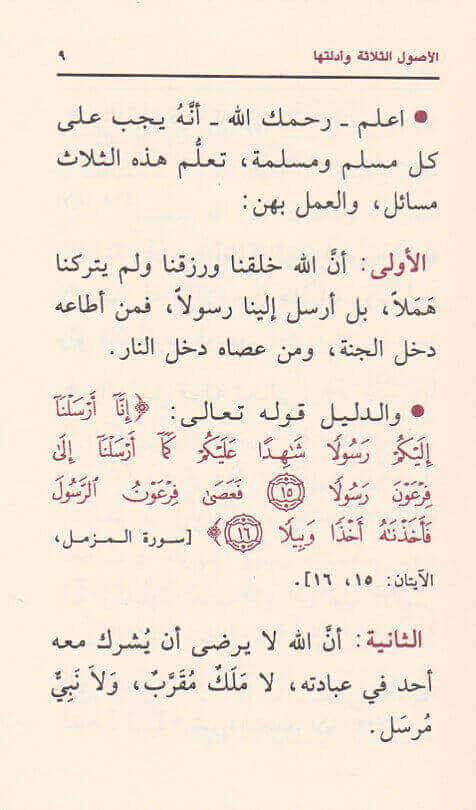 الأصول الثلاثة وأدلتها ٩
● اعلم ـ رحمك الله ـ أنَّهُ يجب على
كل مسلم ومسلمة، تعلُّم هذه الثلاث
مسائل، والعمل بهن:
الأولى: أنَّ الله خلقنا ورزقنا ولم يتركنا
هَمَلاً، بل أرسل إلينا رسولاً، فمن أطاعه
دخل الجنة، ومن عصاه دخل النار.
● والدليل قوله تعالى: ﴿إِنَّآ أَرۡسَلۡنَآ
إِلَيۡكُمۡ رَسُولٗا شَٰهِدًا عَلَيۡكُمۡ كَمَآ أَرۡسَلۡنَآ إِلَىٰ
فِرۡعَوۡنَ رَسُولٗا ١٥ فَعَصَىٰ فِرۡعَوۡنُ ٱلرَّسُولَ
فَأَخَذۡنَٰهُ أَخۡذٗا وَبِيلٗا ١٦﴾ [سورة المزمل،
الآيتان: ١٥، ١٦].
الثانية: أنَّ الله لا يرضى أن يُشرك معه
أحد في عبادته، لا مَلَكٌ مُقَرَّبٌ، وَلاَ نَبِيٌّ
مُرسَل.